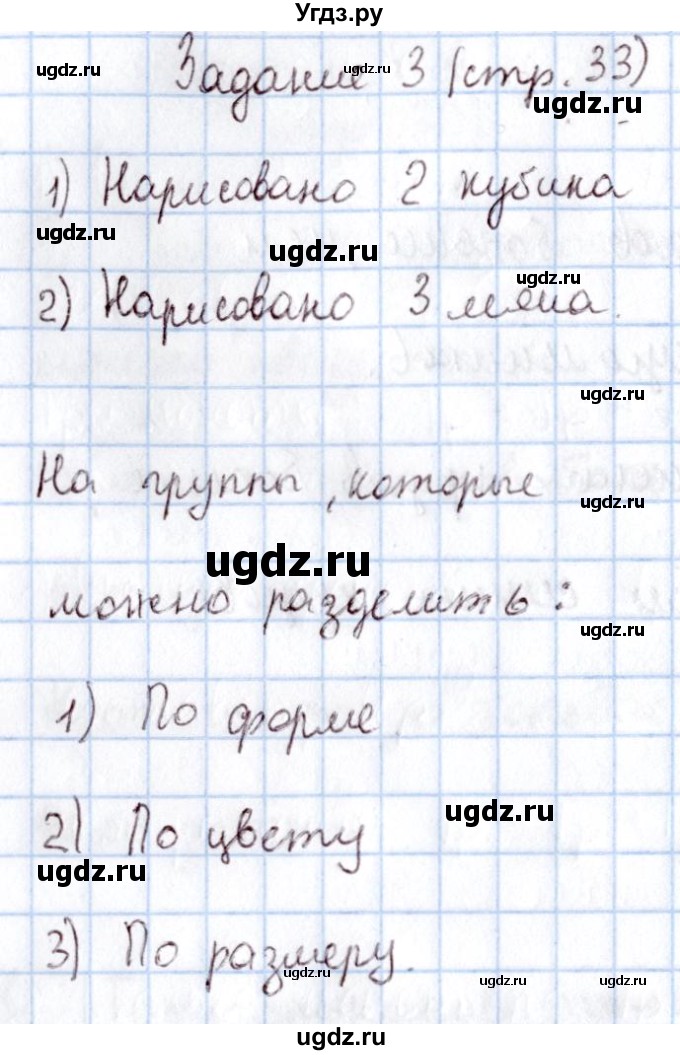 Угдз.ру
ugdz.ru ugdz.ru
Задание 3 (стр. 33)
ugdz.ru
1) Нарисовано 2 кубика
ugdz.ru ugdz.ru
ugdz.ru
2) Нарисовано 3 мяча.
ugdz.ru
На группы, которые
ugdz.ru
ugdz.ru
можно разделить:
ugdz.ru
1) По форме
2) По цвету
ugdz.ru
ugdz.ru
3) По размеру.
ugdz.ru ugdz.ru ugdz.ru
ugdz.ru